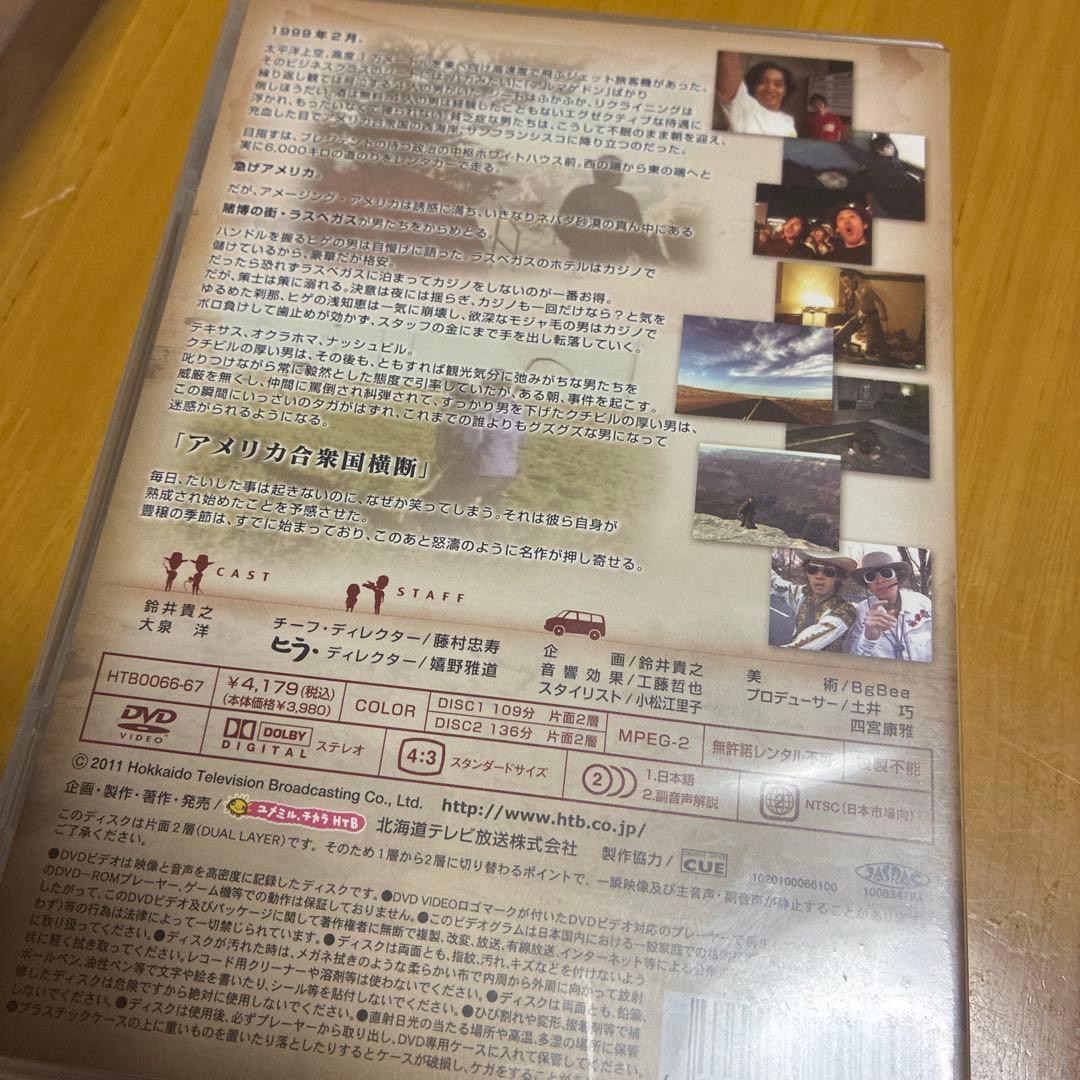 1999年2月。
太平洋上空、高度1万メートルを東へ向け高速度で飛ぶジェット旅客機があった。
そのビジネスクラスのシートには、バカみたいに「アルマゲドン」ばかり
繰り返し観ては号泣する4人の男がいた。シートはふかふか、リクライニングは
倒しほうだい、酒は無料。4人の男は経験したこともないエグゼクティブな待遇に
浮かれ、もったいなくて寝られない。貧乏症な男たちは、こうして不眠のまま朝を迎え、
充血した目でアメリカ合衆国の西海岸、サンフランシスコに降り立つのだった。
目指すは、プレジデントの待つ政治の中枢ホワイトハウス前。西の端から東の端へと
実に6,000キロの道のりをレンタカーで走る。
急げアメリカ。
だが、アメージング・アメリカは誘惑に満ち、いきなりネバダ砂漠の真ん中にある
賭博の街・ラスベガスが男たちをからめとる。
ハンドルを握るヒゲの男は自慢げに語った。ラスベガスのホテルはカジノで
儲けているから、豪華だが格安。
だったら恐れずラスベガスに泊まってカジノをしないのが一番お得。
だが、策士は策に溺れる。決意は夜には揺らぎ、カジノも一回だけなら？と気を
ゆるめた刹那、ヒゲの浅知恵は一気に崩壊し、欲深なモジャ毛の男はカジノで
ボロ負けして歯止めが効かず、スタッフの金にまで手を出し転落していく。
テキサス、オクラホマ、ナッシュビル。
クチビルの厚い男は、その後も、ともすれば観光気分に弛みがちな男たちを
叱りつけながら常に毅然とした態度で引率していたが、ある朝、事件を起こす。
威厳を無くし、仲間に罵倒され糾弾されて、すっかり男を下げたクチビルの厚い男は、
この瞬間にいっさいのタガがはずれ、これまでの誰よりもグズグズな男になって
迷惑がられるようになる。
「アメリカ合衆国横断」
毎日、たいした事は起きないのに、なぜか笑ってしまう。それは彼ら自身が
熟成され始めたことを予感させた。
豊穣の季節は、すでに始まっており、このあと怒濤のように名作が押し寄せる。
CAST
鈴井貴之
大泉 洋
STAFF
チーフ・ディレクター/藤村忠寿
ヒラ・ディレクター/嬉野雅道
企 画/鈴井貴之
音響効果/工藤哲也
スタイリスト/小松江里子
美 術/BgBee
プロデューサー/土井 巧
四宮康雅
HTB0066-67
￥4,179(税込)
(本体価格￥3,980)
COLOR
DISC1 109分 片面2層
DISC2 136分 片面2層
MPEG-2
無許諾レンタル不可
複製不能
DVD VIDEO
DOLBY DIGITAL ステレオ
4:3 スタンダードサイズ
2 1.日本語
2.副音声解説
2 NTSC(日本市場向)
© 2011 Hokkaido Television Broadcasting Co., Ltd. http://www.htb.co.jp/
企画・製作・著作・発売/ ユメミル、チカラ HTB 北海道テレビ放送株式会社 製作協力/ CREATIVE OFFICE CUE
1020100066100
JASRAC
このディスクは片面2層(DUAL LAYER)です。そのため1層から2層に切り替わるポイントで、一瞬映像及び主音声・副音声が静止することがあります
ご了承ください。
●DVDビデオは映像と音声を高密度に記録したディスクです。●DVD VIDEOロゴマークが付いたDVDビデオ対応のプレーヤーで再生
のDVD-ROMプレーヤー、ゲーム機等での動作は保証しておりません。●このビデオグラムは日本国内における一般家庭での私的
したがって、このDVDビデオ及びパッケージに関して著作権者に無断で複製、改変、放送、有線放送、インターネット等による公衆
わず)等の行為は法律によって一切禁じられています。●ディスクは両面とも、指紋、汚れ、キズなどを付けないよう
に取り扱ってください。●ディスクが汚れた時は、メガネ拭きのような柔らかい布で内周から外周に向かって放射
状に軽く拭き取ってください。レコード用クリーナーや溶剤等は使わないでください。●ディスクは両面とも、鉛筆、
ボールペン、油性ペン等で文字や絵を書いたり、シール等を貼付しないでください。●ひび割れや変形、接着剤等で補
修したディスクは危険ですから絶対に使用しないでください。●直射日光の当たる場所や高温、多湿の場所に保管
しないでください。●ディスクは使用後、必ずプレーヤーから取り出し、DVD専用ケースに入れて保管してください。
●プラスチックケースの上に重いものを置いたり落としたりするとケースが破損し、ケガをすることが